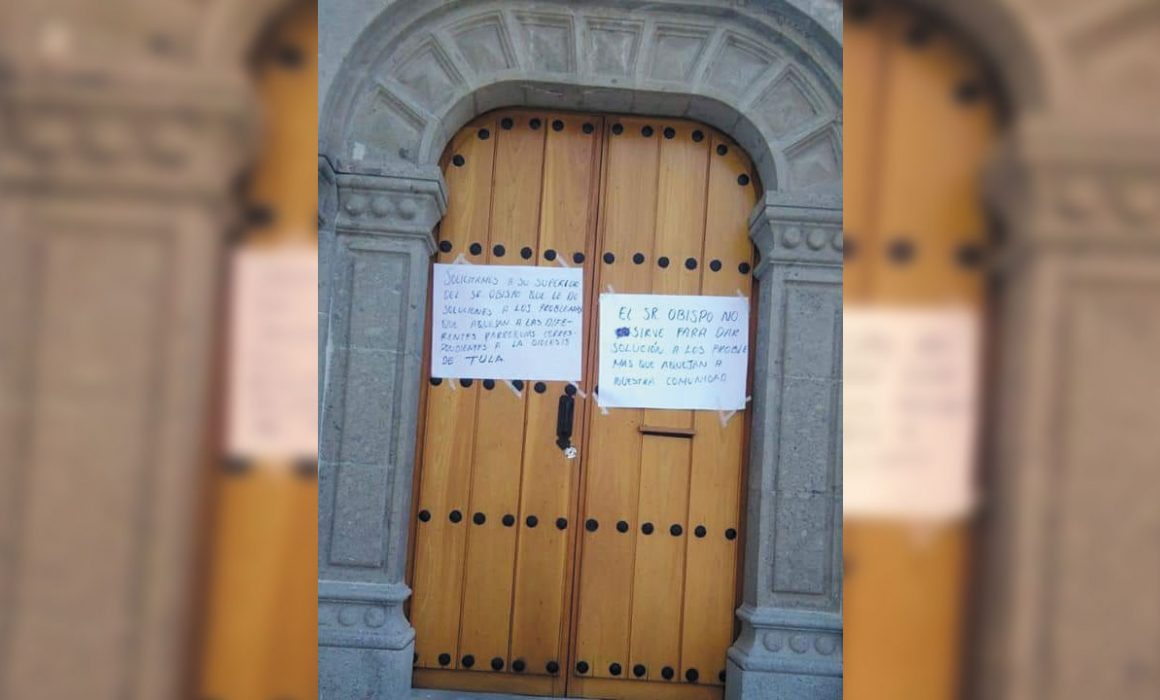 SOLICITAMOS A SU SUPERIOR
DEL SR. OBISPO QUE LE DE
SOLUCIONES A LOS PROBLEMAS
QUE AQUEJAN A LAS DIFE-
RENTES PARROQUIAS CORRES-
PONDIENTES A LA DIOCESIS
DE TULA
EL SR OBISPO NO
SIRVE PARA DAR
SOLUCIÓN A LOS PROBLE
MAS QUE AQUEJAN A
NUESTRA COMUNIDAD